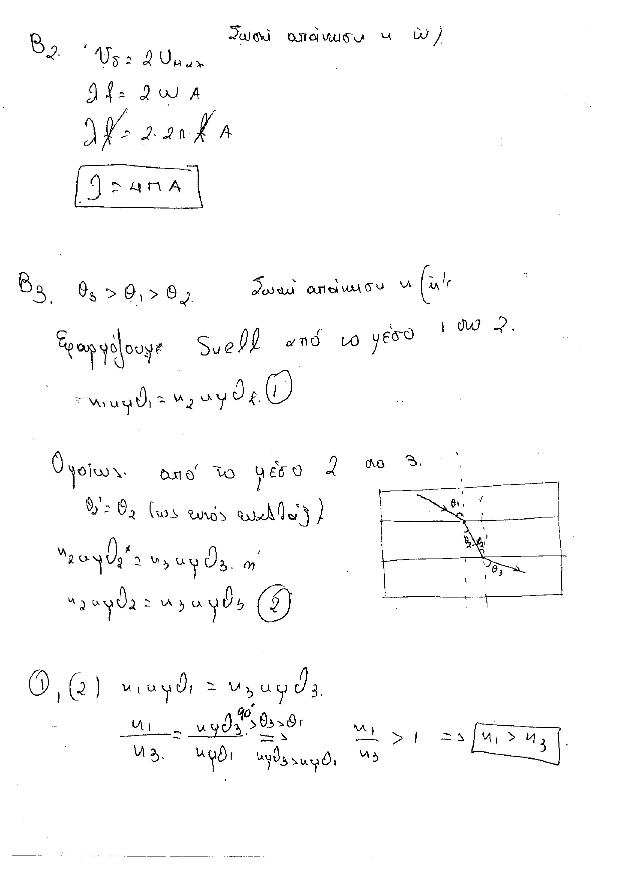 B2. Σωστή απάντηση η iii)
υδ = 2 υmax
λf = 2 ω A
λf = 2·2π·f A
λ = 4πA
B3. θ3 > θ1 > θ2. Σωστή απάντηση η
Εφαρμόζουμε Snell από το μέσο 1 στο 2.
n1 ημθ1 = n2 ημθ2. ①
Ομοίως από το μέσο 2 στο 3.
θ2' = θ2 (ως εντός εναλλάξ)
n2 ημθ2' = n3 ημθ3. ή
n2 ημθ2 = n3 ημθ3 ②
θ1
θ2 θ2'
θ3
①, (2) n1 ημθ1 = n3 ημθ3.
n1/n3 = ημθ3/ημθ1 90°>θ3>θ1 => ημθ3>ημθ1 n1/n3 > 1 => n1 > n3